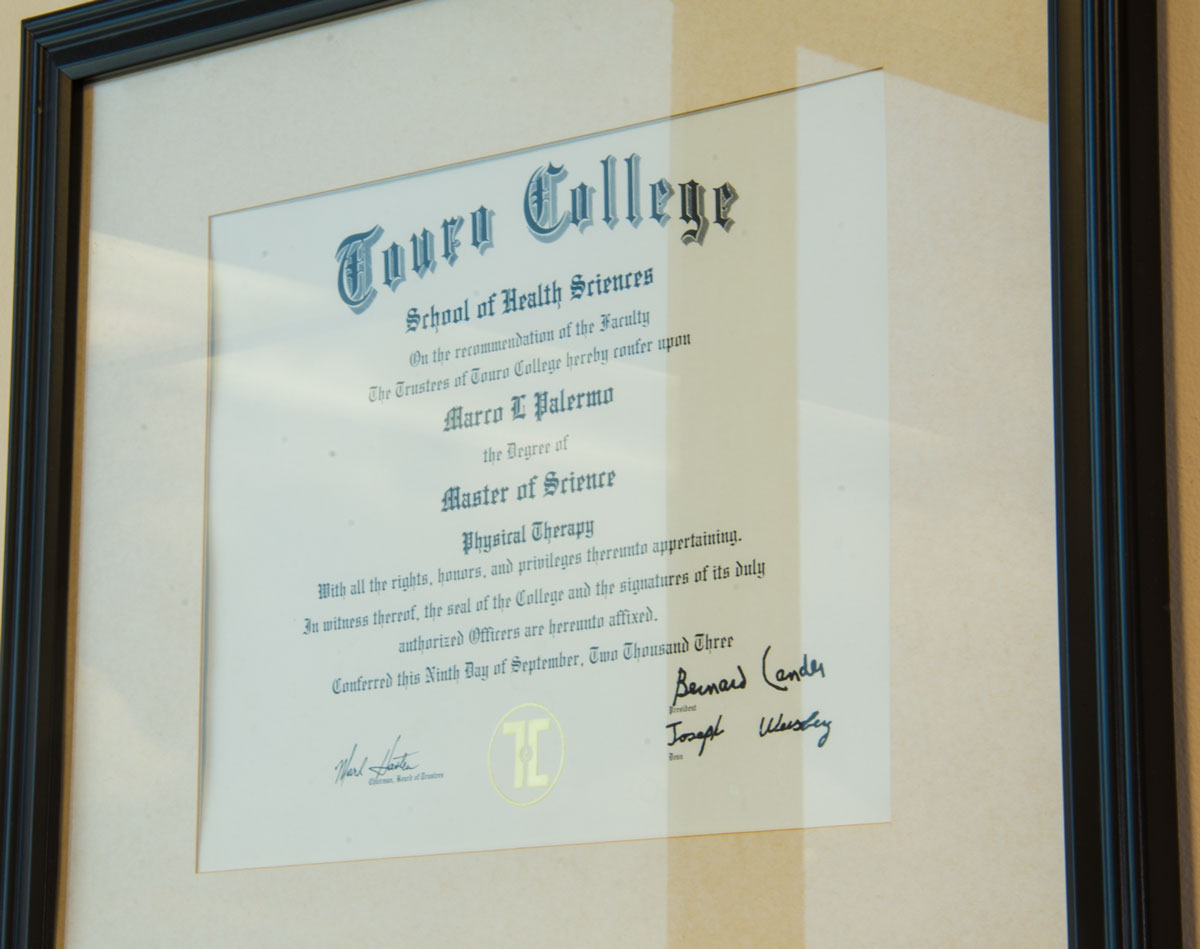 Touro College
School of Health Sciences
On the recommendation of the Faculty
The Trustees of Touro College hereby confer upon
Marco L Palermo
the Degree of
Master of Science
Physical Therapy
With all the rights, honors, and privileges thereunto appertaining.
In witness thereof, the seal of the College and the signatures of its duly
authorized Officers are hereunto affixed.
Conferred this Ninth Day of September, Two Thousand Three
Bernard Lander
President
Joseph
Dean
Mark
Chairman, Board of Trustees
TC